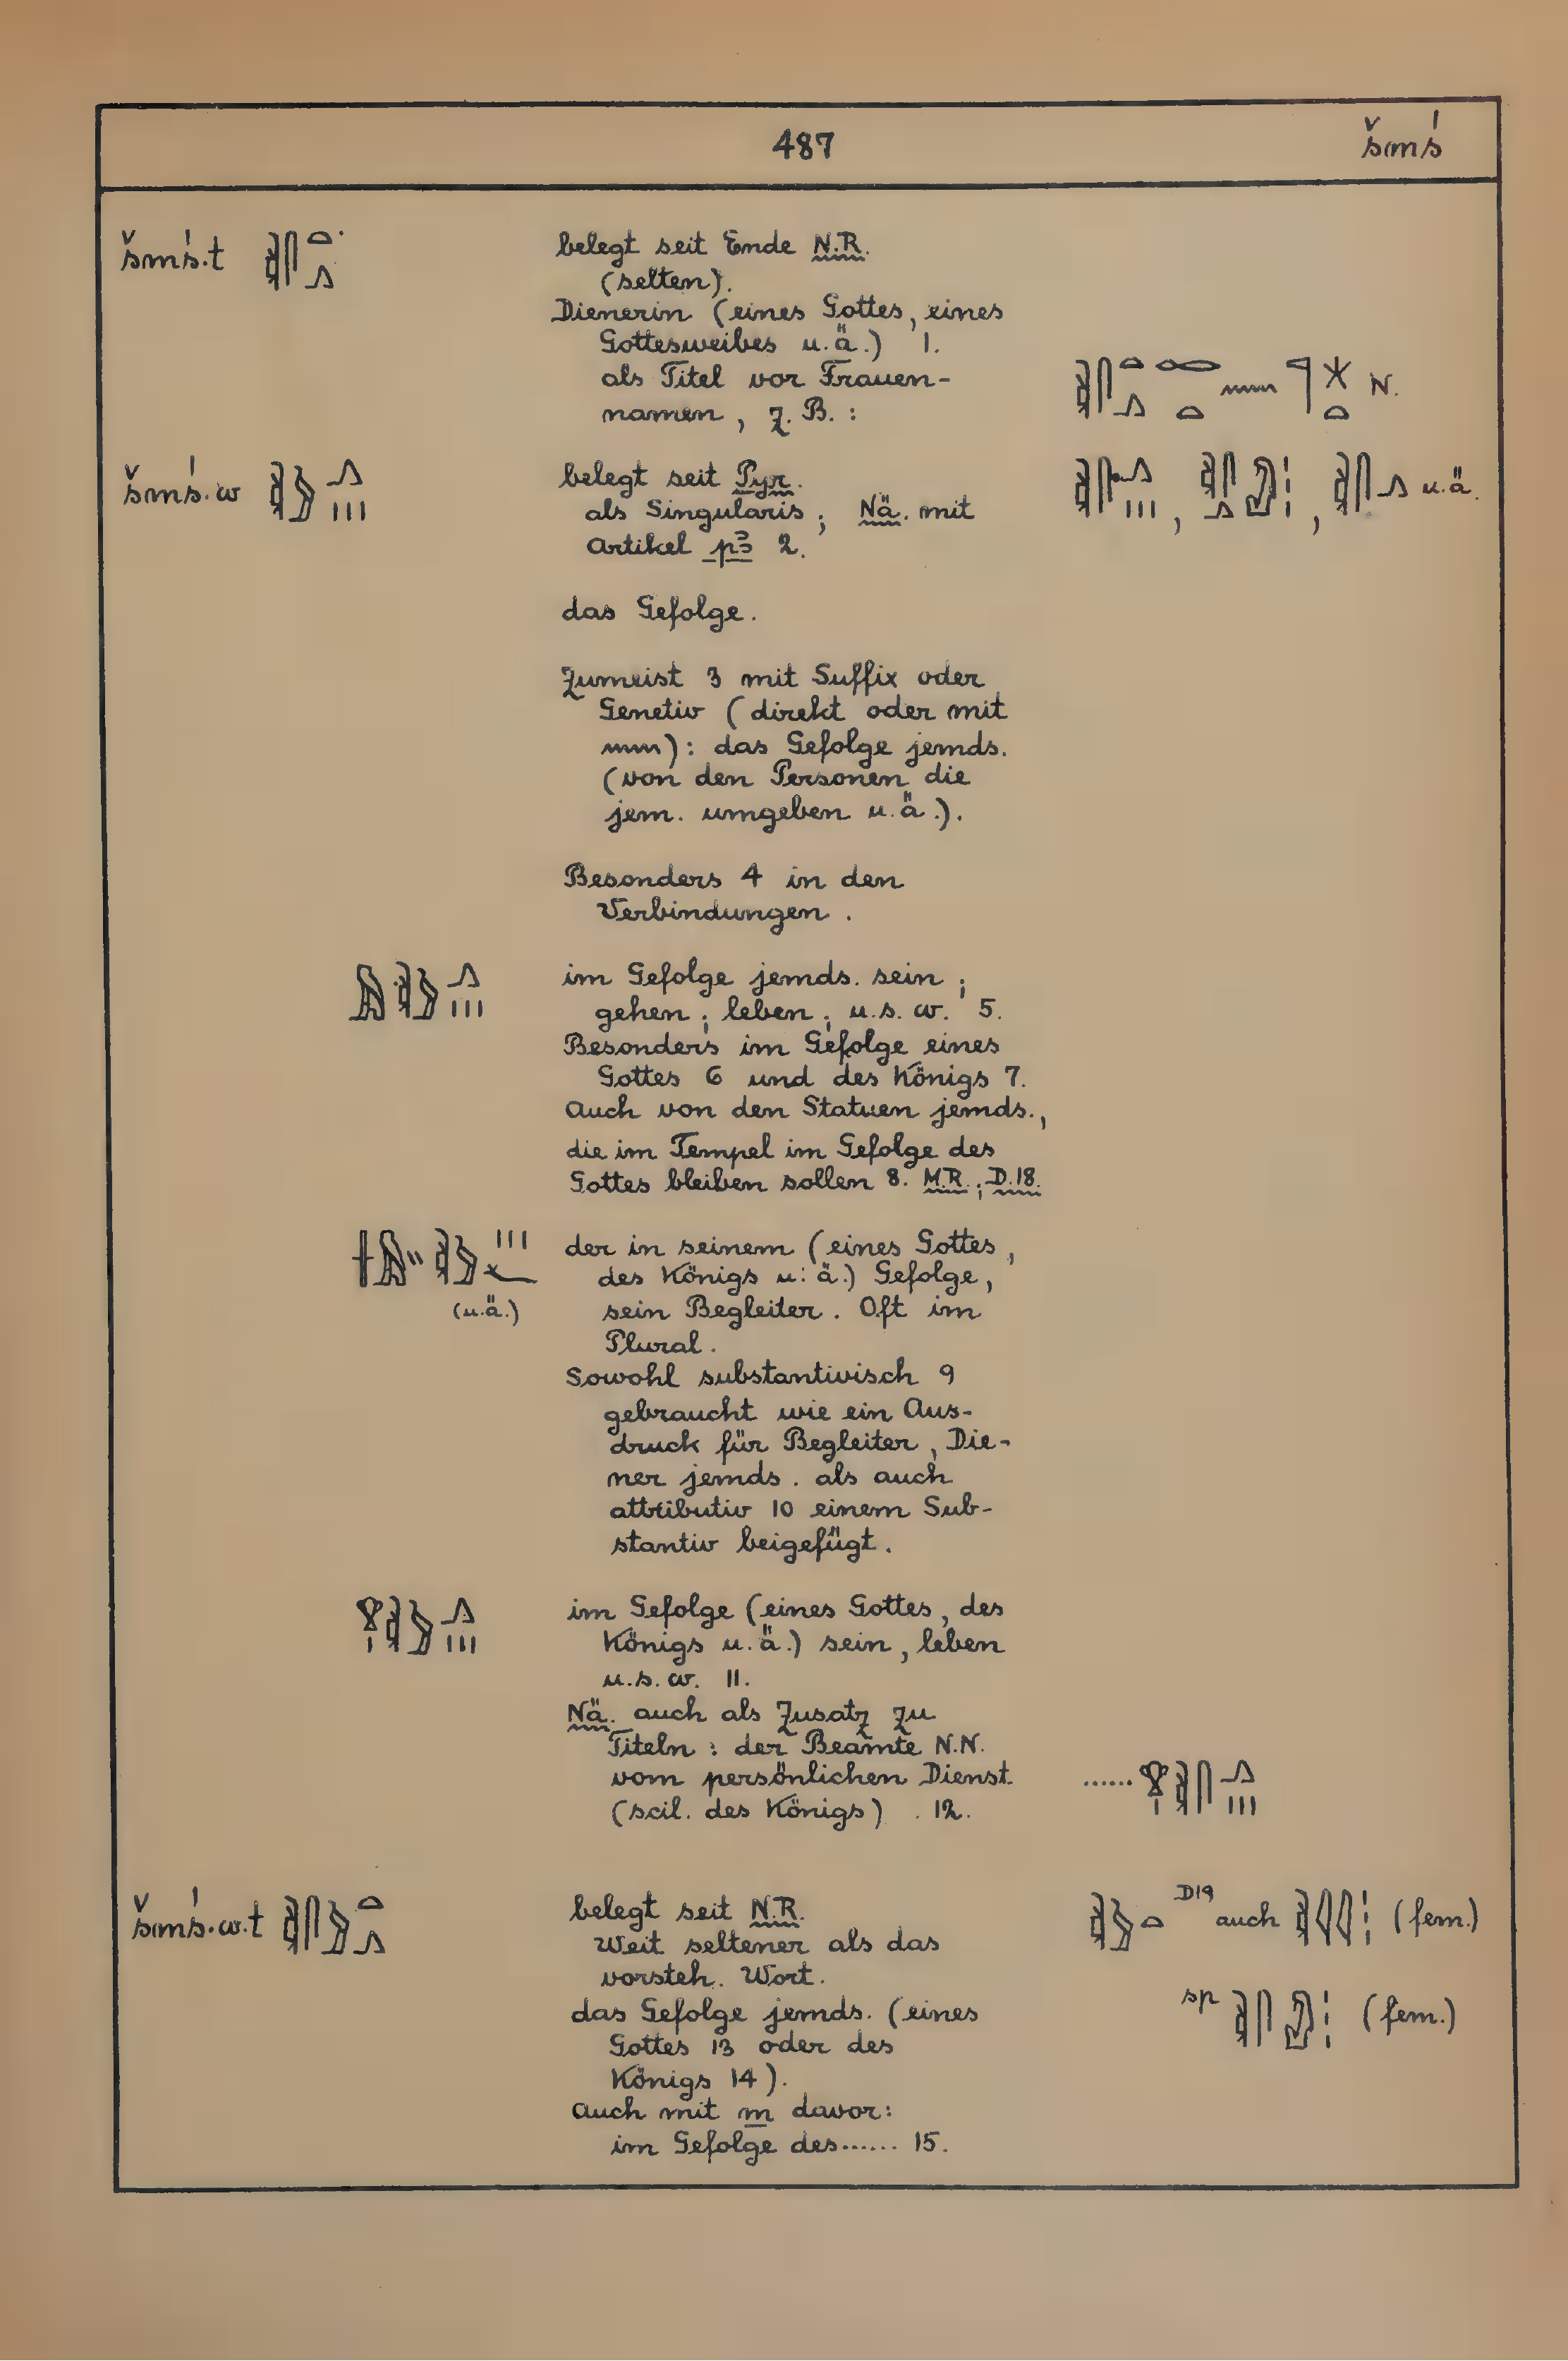 487 šmś
šmś.t
belegt seit Ende N.R.
(selten).
Dienerin (eines Gottes, eines
Gottesweibes u.ä.) 1.
als Titel vor Frauen-
namen, z.B.: N.
šmś.w
belegt seit Pyr. u.ä.
als Singularis; Nä. mit
Artikel pꜣ 2.
das Gefolge.
Zumeist 3 mit Suffix oder
Genetiv (direkt oder mit
𓈖): das Gefolge jemds.
(von den Personen die
jem. umgeben u.ä.).
Besonders 4 in den
Verbindungen.
im Gefolge jemds. sein;
gehen; leben; u.s.w. 5.
Besonders im Gefolge eines
Gottes 6 und des Königs 7.
Auch von den Statuen jemds.,
die im Tempel im Gefolge des
Gottes bleiben sollen 8. M.R.; D.18.
der in seinem (eines Gottes,
des Königs u.ä.) Gefolge,
(u.ä.) sein Begleiter. Oft im
Plural.
Sowohl substantivisch 9
gebraucht wie ein Aus-
druck für Begleiter, Die-
ner jemds. als auch
attributiv 10 einem Sub-
stantiv beigefügt.
im Gefolge (eines Gottes, des
Königs u.ä.) sein, leben
u.s.w. 11.
Nä. auch als Zusatz zu
Titeln: der Beamte N.N.
vom persönlichen Dienst ......
(scil. des Königs). 12.
šmś.w.t
belegt seit N.R. D19 auch (fem.)
Weit seltener als das
vorsteh. Wort.
das Gefolge jemds. (eines sp (fem.)
Gottes 13 oder des
Königs 14).
Auch mit m davor:
im Gefolge des...... 15.